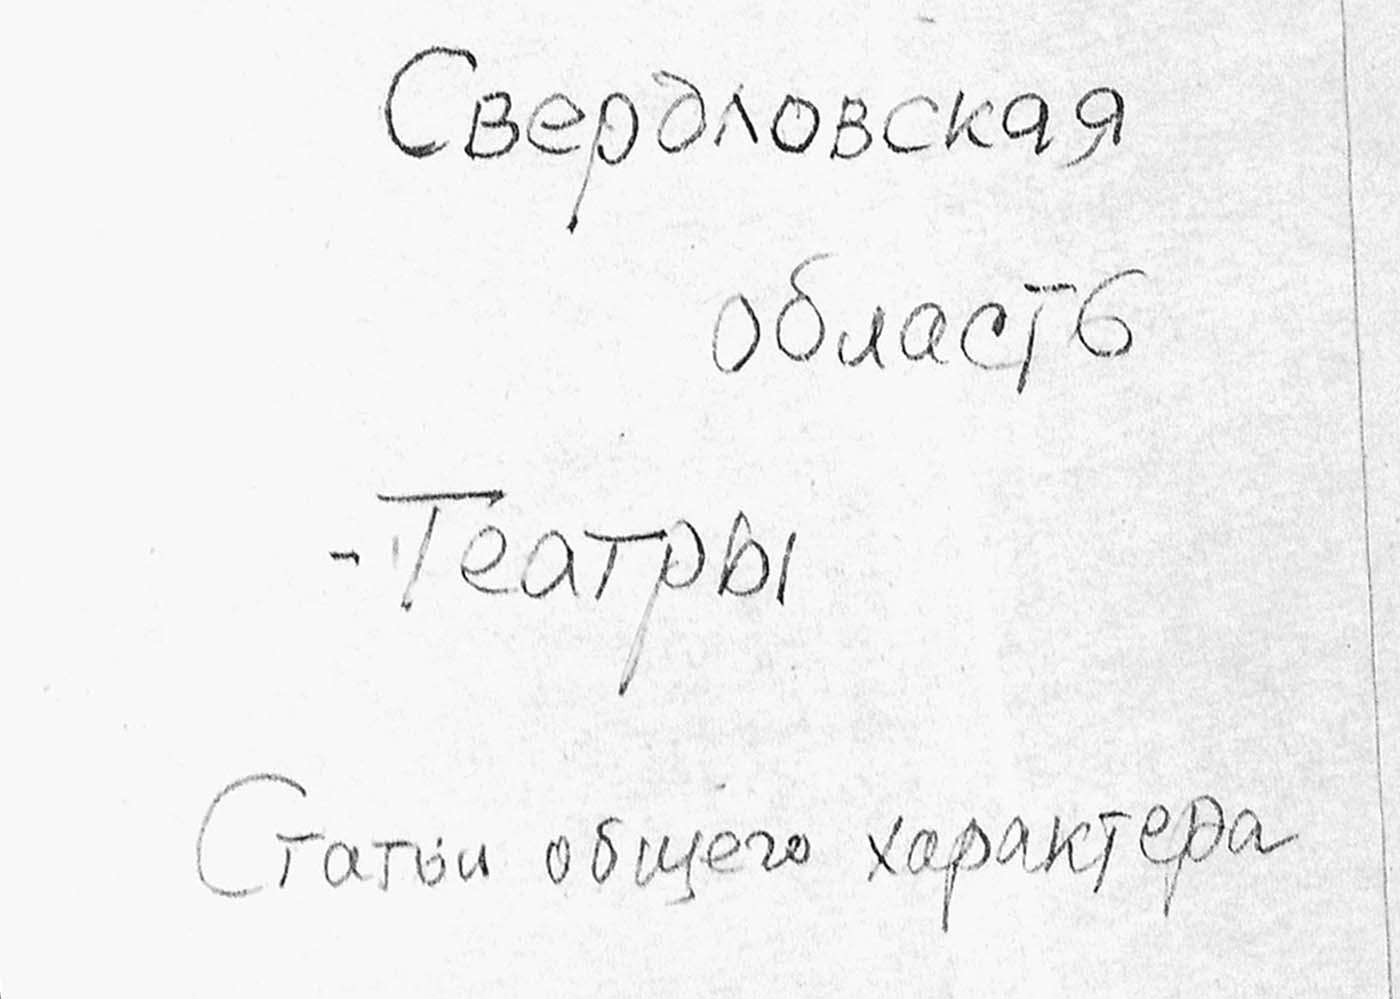 Свердловская
область
- Театры
Статьи общего характера